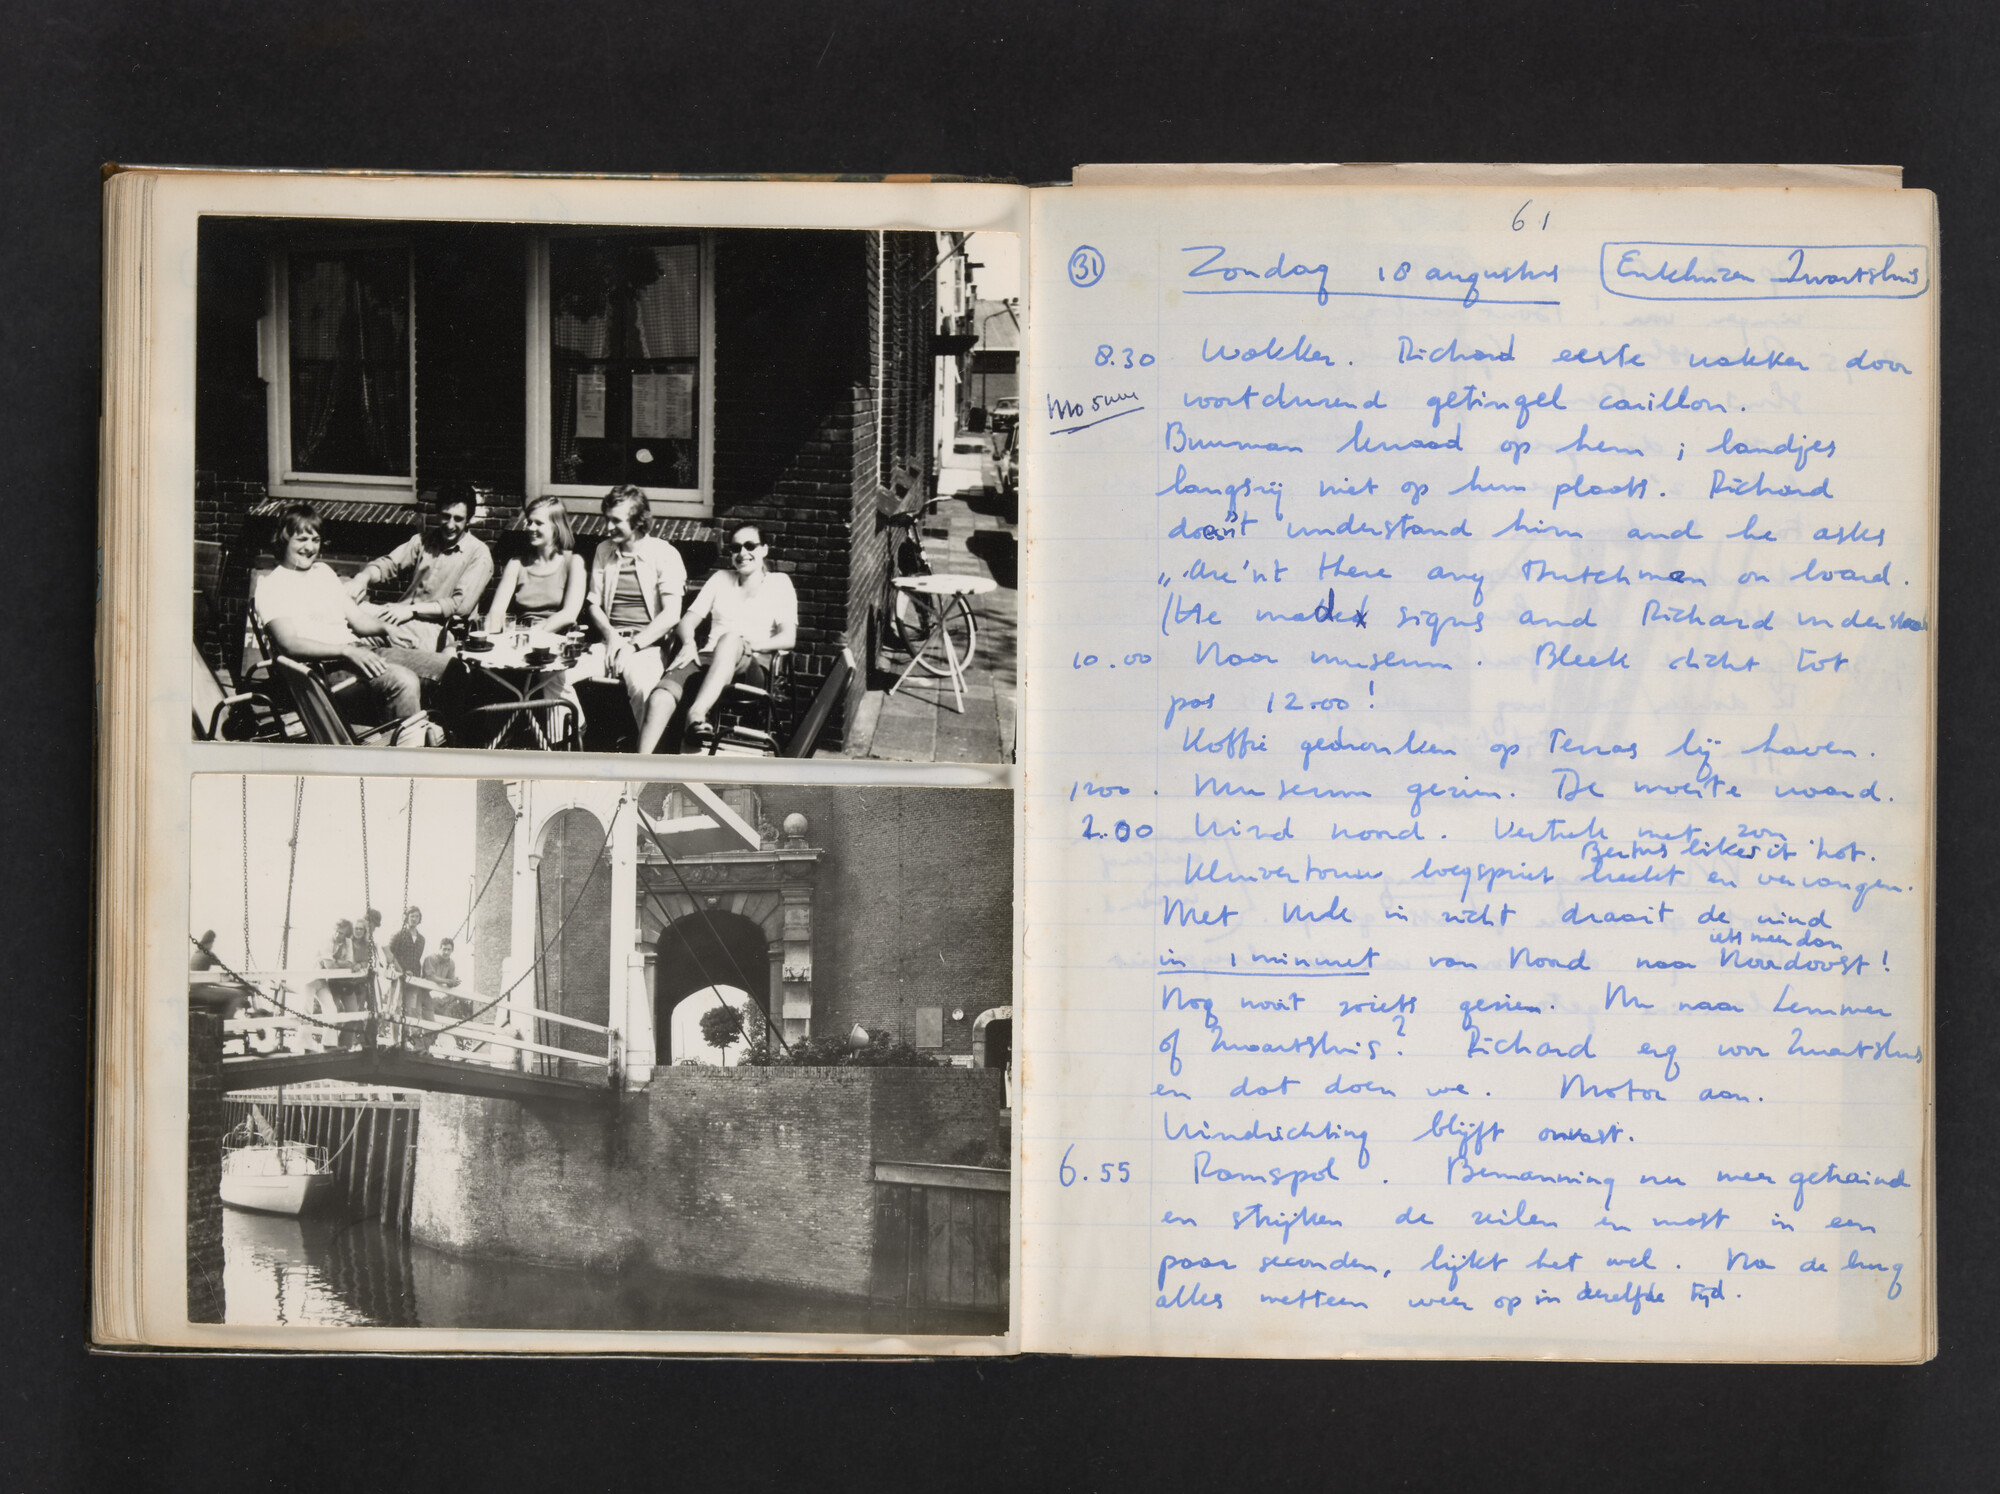 61
31 Zondag 18 augustus Enkhuizen Zwartsluis
8.30 Wakker. Richard eerste wakker door
voortdurend getingel carillon.
Buurman kwaad op hem; landjes
langszij niet op hun plaats. Richard
doesn't understand him and he asks
„Are'nt there any Dutchman on board.
(He made signs and Richard understood
10.00 Naar museum. Bleek dicht tot
pas 12.00!
Koffie gedronken op Terras bij haven.
1200. Museum gezien. De moeite waard.
2.00 Wind noord. Vertrek met zon.
Bertus likes it hot.
Kluvertouw boegspriet breekt en vervangen.
Met Urk in zicht draait de wind
iets meer dan
in 1 minuut van Noord naar Noordoost!
Nog nooit zoiets gezien. Nu naar Lemmer
of Zwartsluis? Richard erg voor Zwartsluis
en dat doen we. Motor aan.
Windrichting blijft onvast.
6.55 Ramspol. Bemanning nu meer getraind
en strijken de zeilen en mast in een
paar seconden, lijkt het wel. Na de brug
alles meteen weer op in dezelfde tijd.